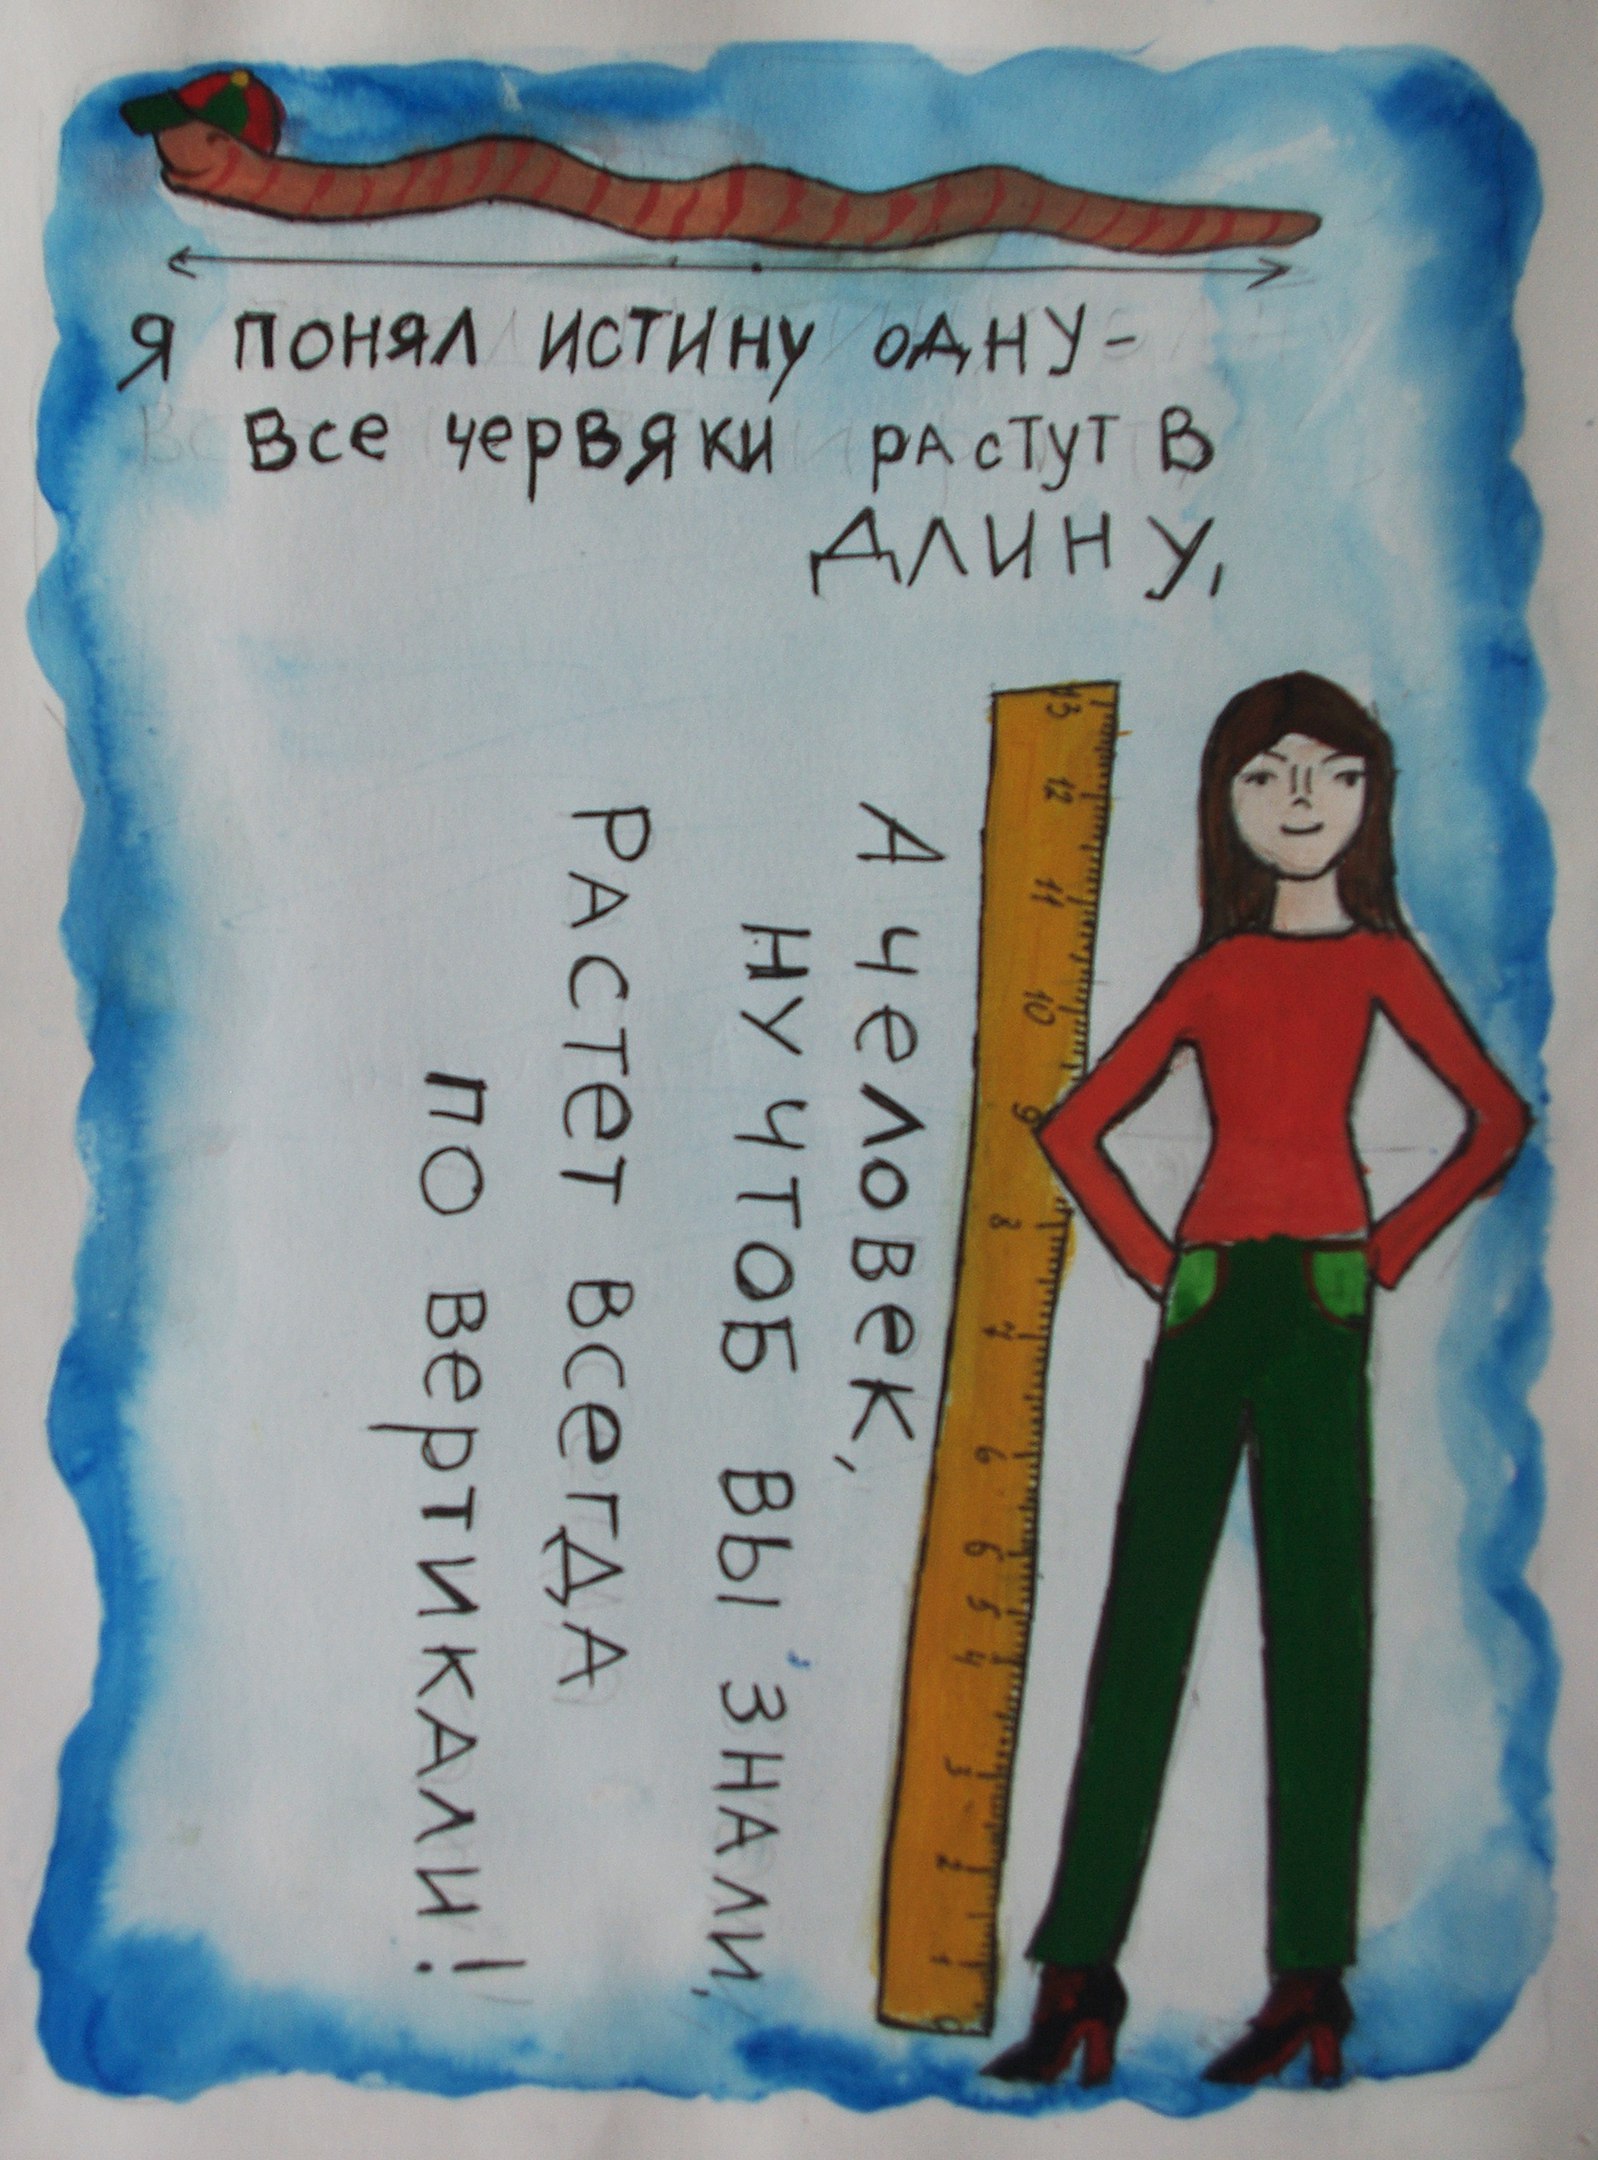 Я ПОНЯЛ ИСТИНУ ОДНУ-
ВСЕ ЧЕРВЯКИ РАСТУТ В
ДЛИНУ,
А ЧЕЛОВЕК,
НУ ЧТОБ ВЫ ЗНАЛИ,
РАСТЕТ ВСЕГДА
ПО ВЕРТИКАЛИ!
13
12
11
10
9
8
7
6
5
4
3
2
1
0